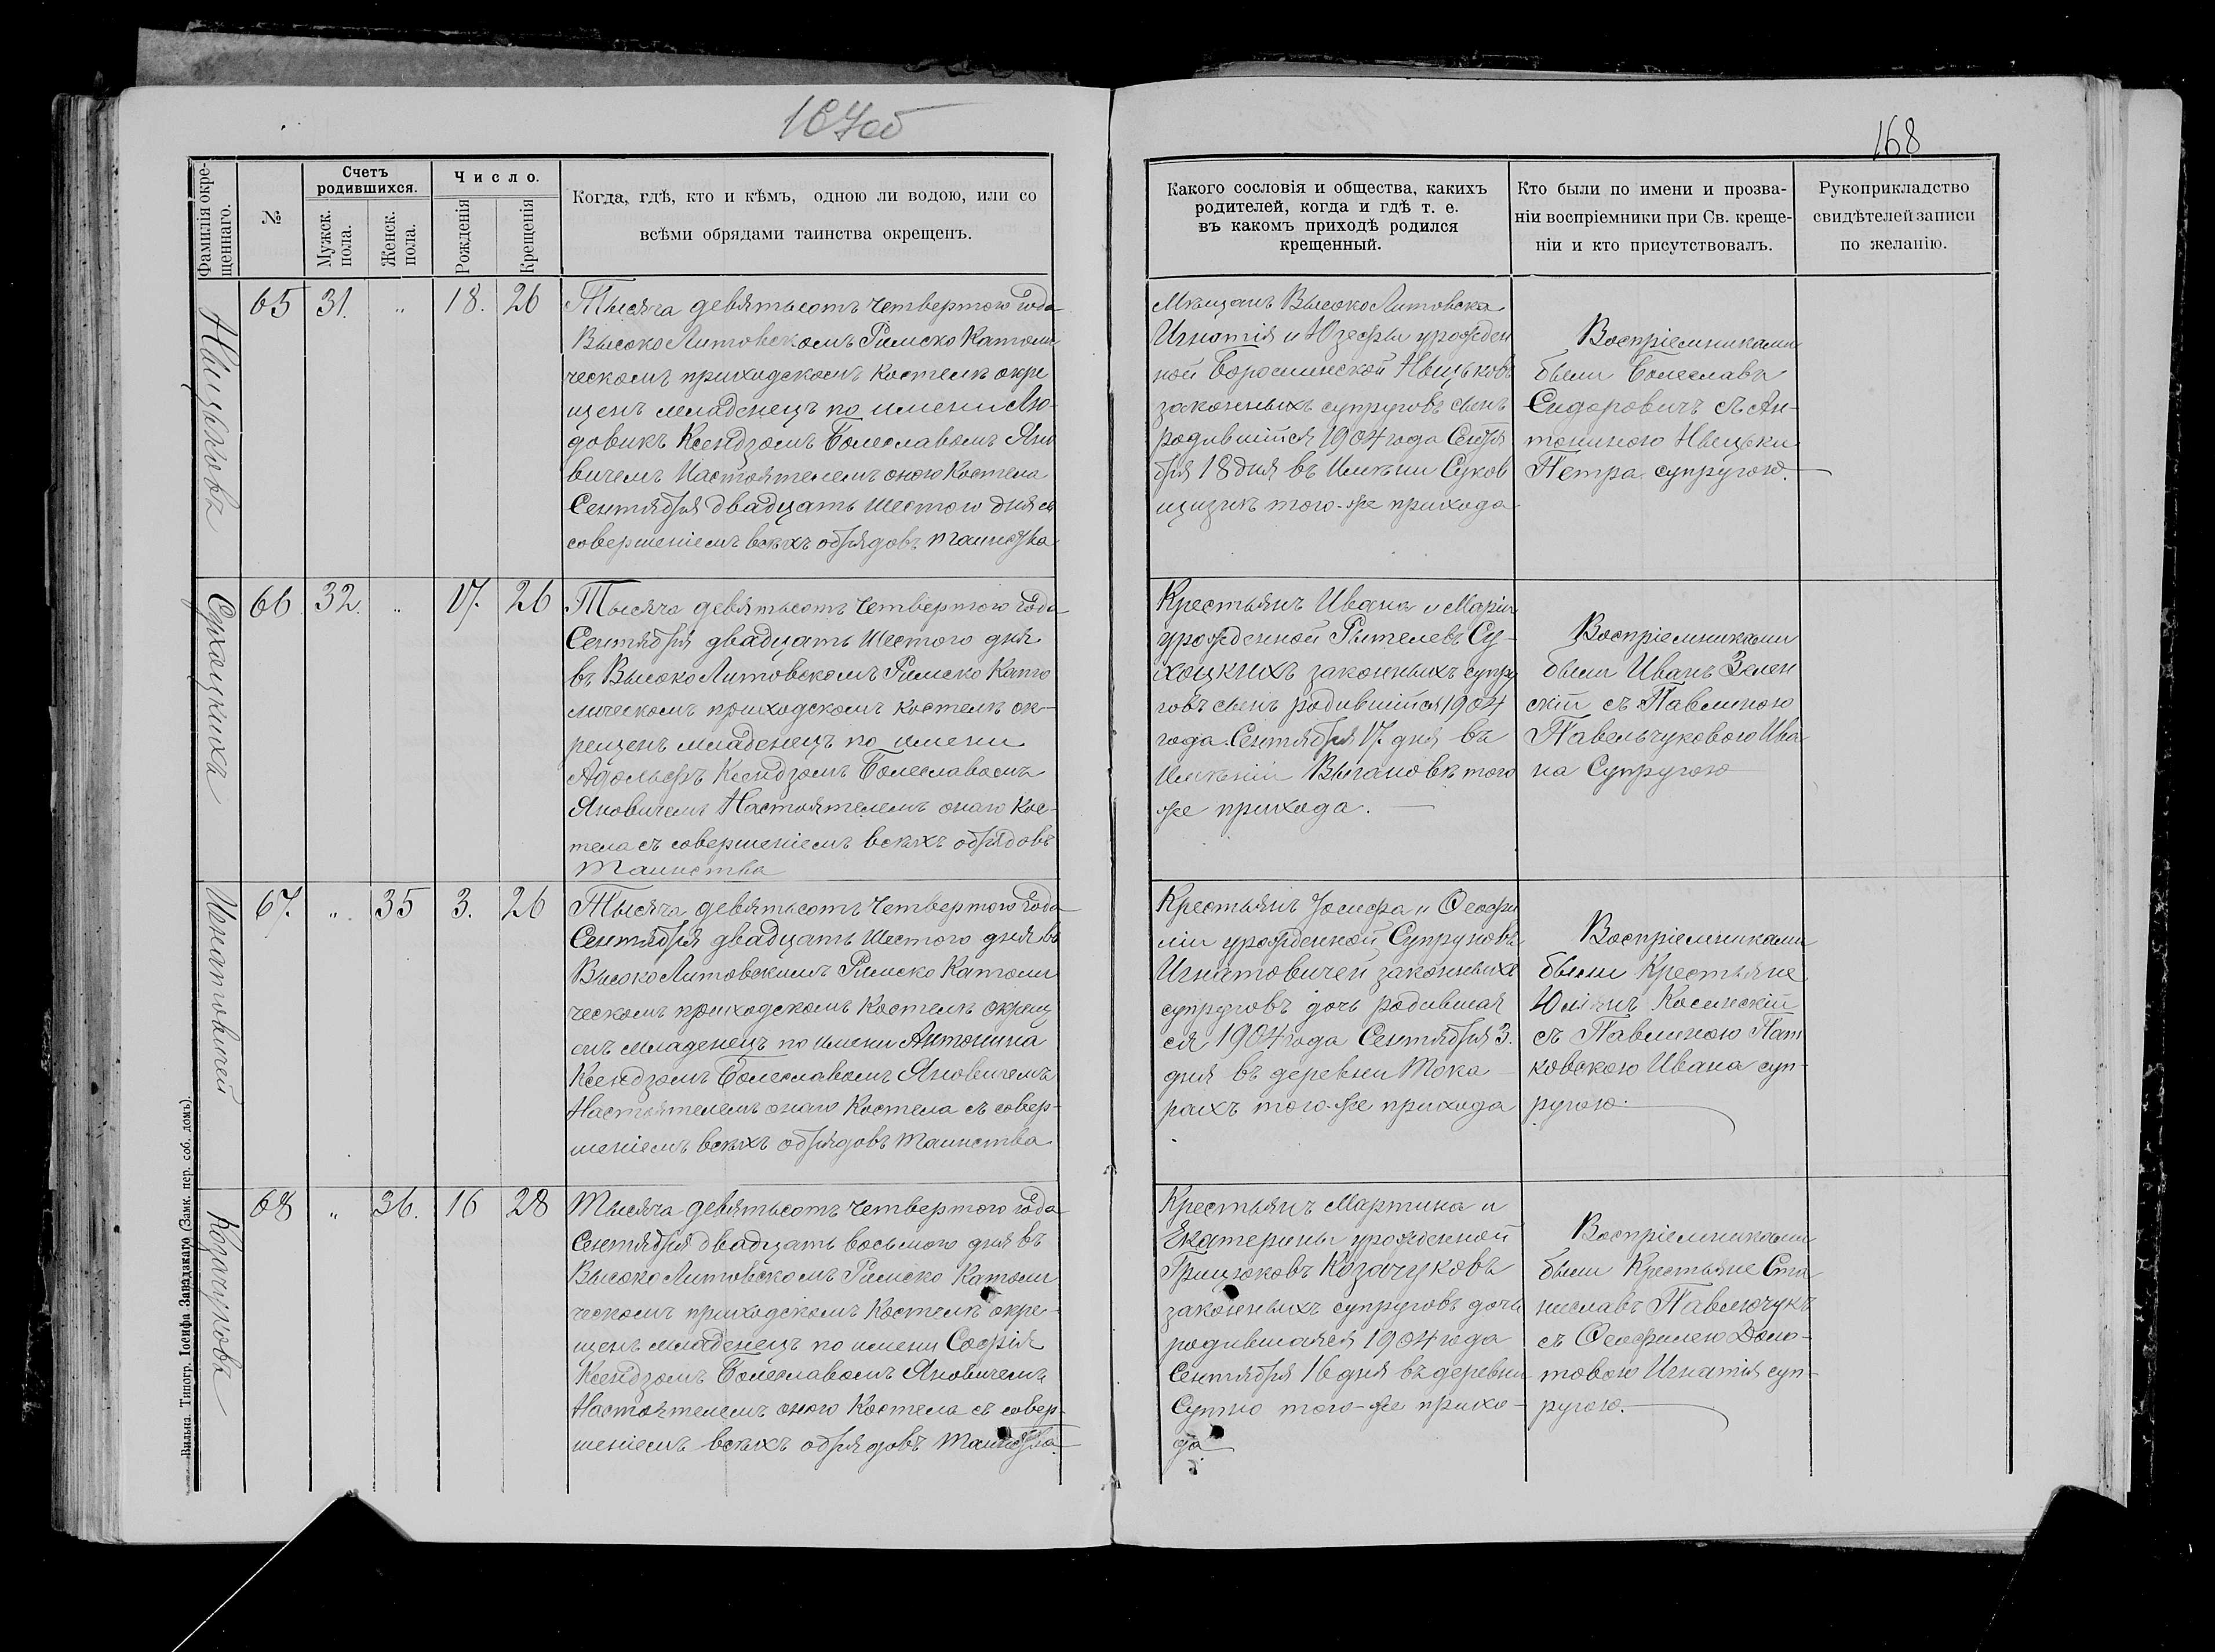 167об
168
Фамилія окре-
щеннаго.
№
Счетъ
родившихся.
Мужск.
пола.
Женск.
пола.
Число.
Рожденія
Крещенія
Когда, гдѣ, кто и кѣмъ, одною ли водою, или со
всѣми обрядами таинства окрещенъ.
Какого сословія и общества, какихъ
родителей, когда и гдѣ т. е.
въ какомъ приходѣ родился
крещенный.
Кто были по имени и прозва-
ніи воспріемники при Св. креще-
ніи и кто присутствовалъ.
Рукоприкладство
свидѣтелей записи
по желанію.
65 31. " 18. 26
Тысяча девятьсотъ четвертого года
ВысокоЛитовскомъ Римско Катали
ческомъ приходскомъ костелѣ окре
щенъ младенецъ по имени Лю-
довикъ Ксендзомъ Болеславомъ Яно
вичемъ Настоятелемъ оного Костела
Сентября двадцать шестого дня съ
совершеніемъ всѣхъ обрядовъ таинства
Мѣщанъ ВысокоЛитовска
Игнатія и Юзефы урожден
ной
законныхъ супруговъ сынъ
родившійся 1904 года Сентя
бря 18 дня въ Имѣніи
того-же прихода
Воспріемниками
были Болеславъ
Сидоровичъ съ Ан-
тониною
Петра супругою.
Сухоцкихъ
66 32. " 17. 26
Тысяча девятьсотъ четвертого года
Сентября двадцать шестого дня
въ ВысокоЛитовскомъ Римско Като
лическомъ приходскомъ костелѣ ок-
рещенъ младенецъ по имени
Адольфъ Ксендзомъ Болеславомъ
Яновичемъ Настоятелемъ оного Кос-
тела съ совершеніемъ всѣхъ обрядовъ
Таинства
Крестьянъ Ивана и Маріи
урожденной Рителевъ Су-
хоцкихъ законныхъ супру
говъ сынъ родившійся 1904
года Сентября 17 дня въ
Имѣніи Вычановѣ того
же прихода.
Воспріемниками
были Иванъ Зелен
скій съ Павлиною
Павельчуковою Ива
на Супругою
Игнатовичей
67. " 35 3. 26
Тысяча девятьсотъ четвертого года
Сентября двадцать шестого дня въ
ВысокоЛитовскомъ Римско Катали
ческомъ приходскомъ Костелѣ окрещ
енъ младенецъ по имени Антонина
Ксендзомъ Болеславомъ Яновичемъ
Настоятелемъ оного Костела съ совер-
шеніемъ всѣхъ обрядовъ таинства
Крестьянъ Іосифа и Ѳеофи
ліи урожденной Супруновъ
Игнатовичей законныхъ
супруговъ дочь родившая
ся 1904 года Сентября 3.
дня въ деревни Тока
рахъ того-же прихода
Воспріемниками
были Крестьяне
Юліянъ Косинскій
съ Павлиною
ковскою Ивана суп-
ругою.
Козачуковъ
68 " 36. 16 28
Тысяча девятьсотъ четвертого года
Сентября двадцать восьмого дня въ
ВысокоЛитовскомъ Римско Катали
ческомъ приходскомъ Костелѣ окре-
щенъ младенецъ по имени Софія
Ксендзомъ Болеславомъ Яновичемъ
Настоятелемъ оного Костела съ совер-
шеніемъ всѣхъ обрядовъ таинства.
Крестьянъ Мартина и
Екатерины урожденной
Грицюковъ Козачуковъ
законныхъ супруговъ дочь
родившаяся 1904 года
Сентября 16 дня въ деревни
Сутно того-же прихо-
да
Воспріемниками
были Крестьяне Ста
ниславъ Павлючукъ
съ Ѳеофилею Доло-
товою Игнатія суп-
ругою.
Вильна. Типогр. Іосифа Завадзкаго (Замк. пер. соб. домъ).